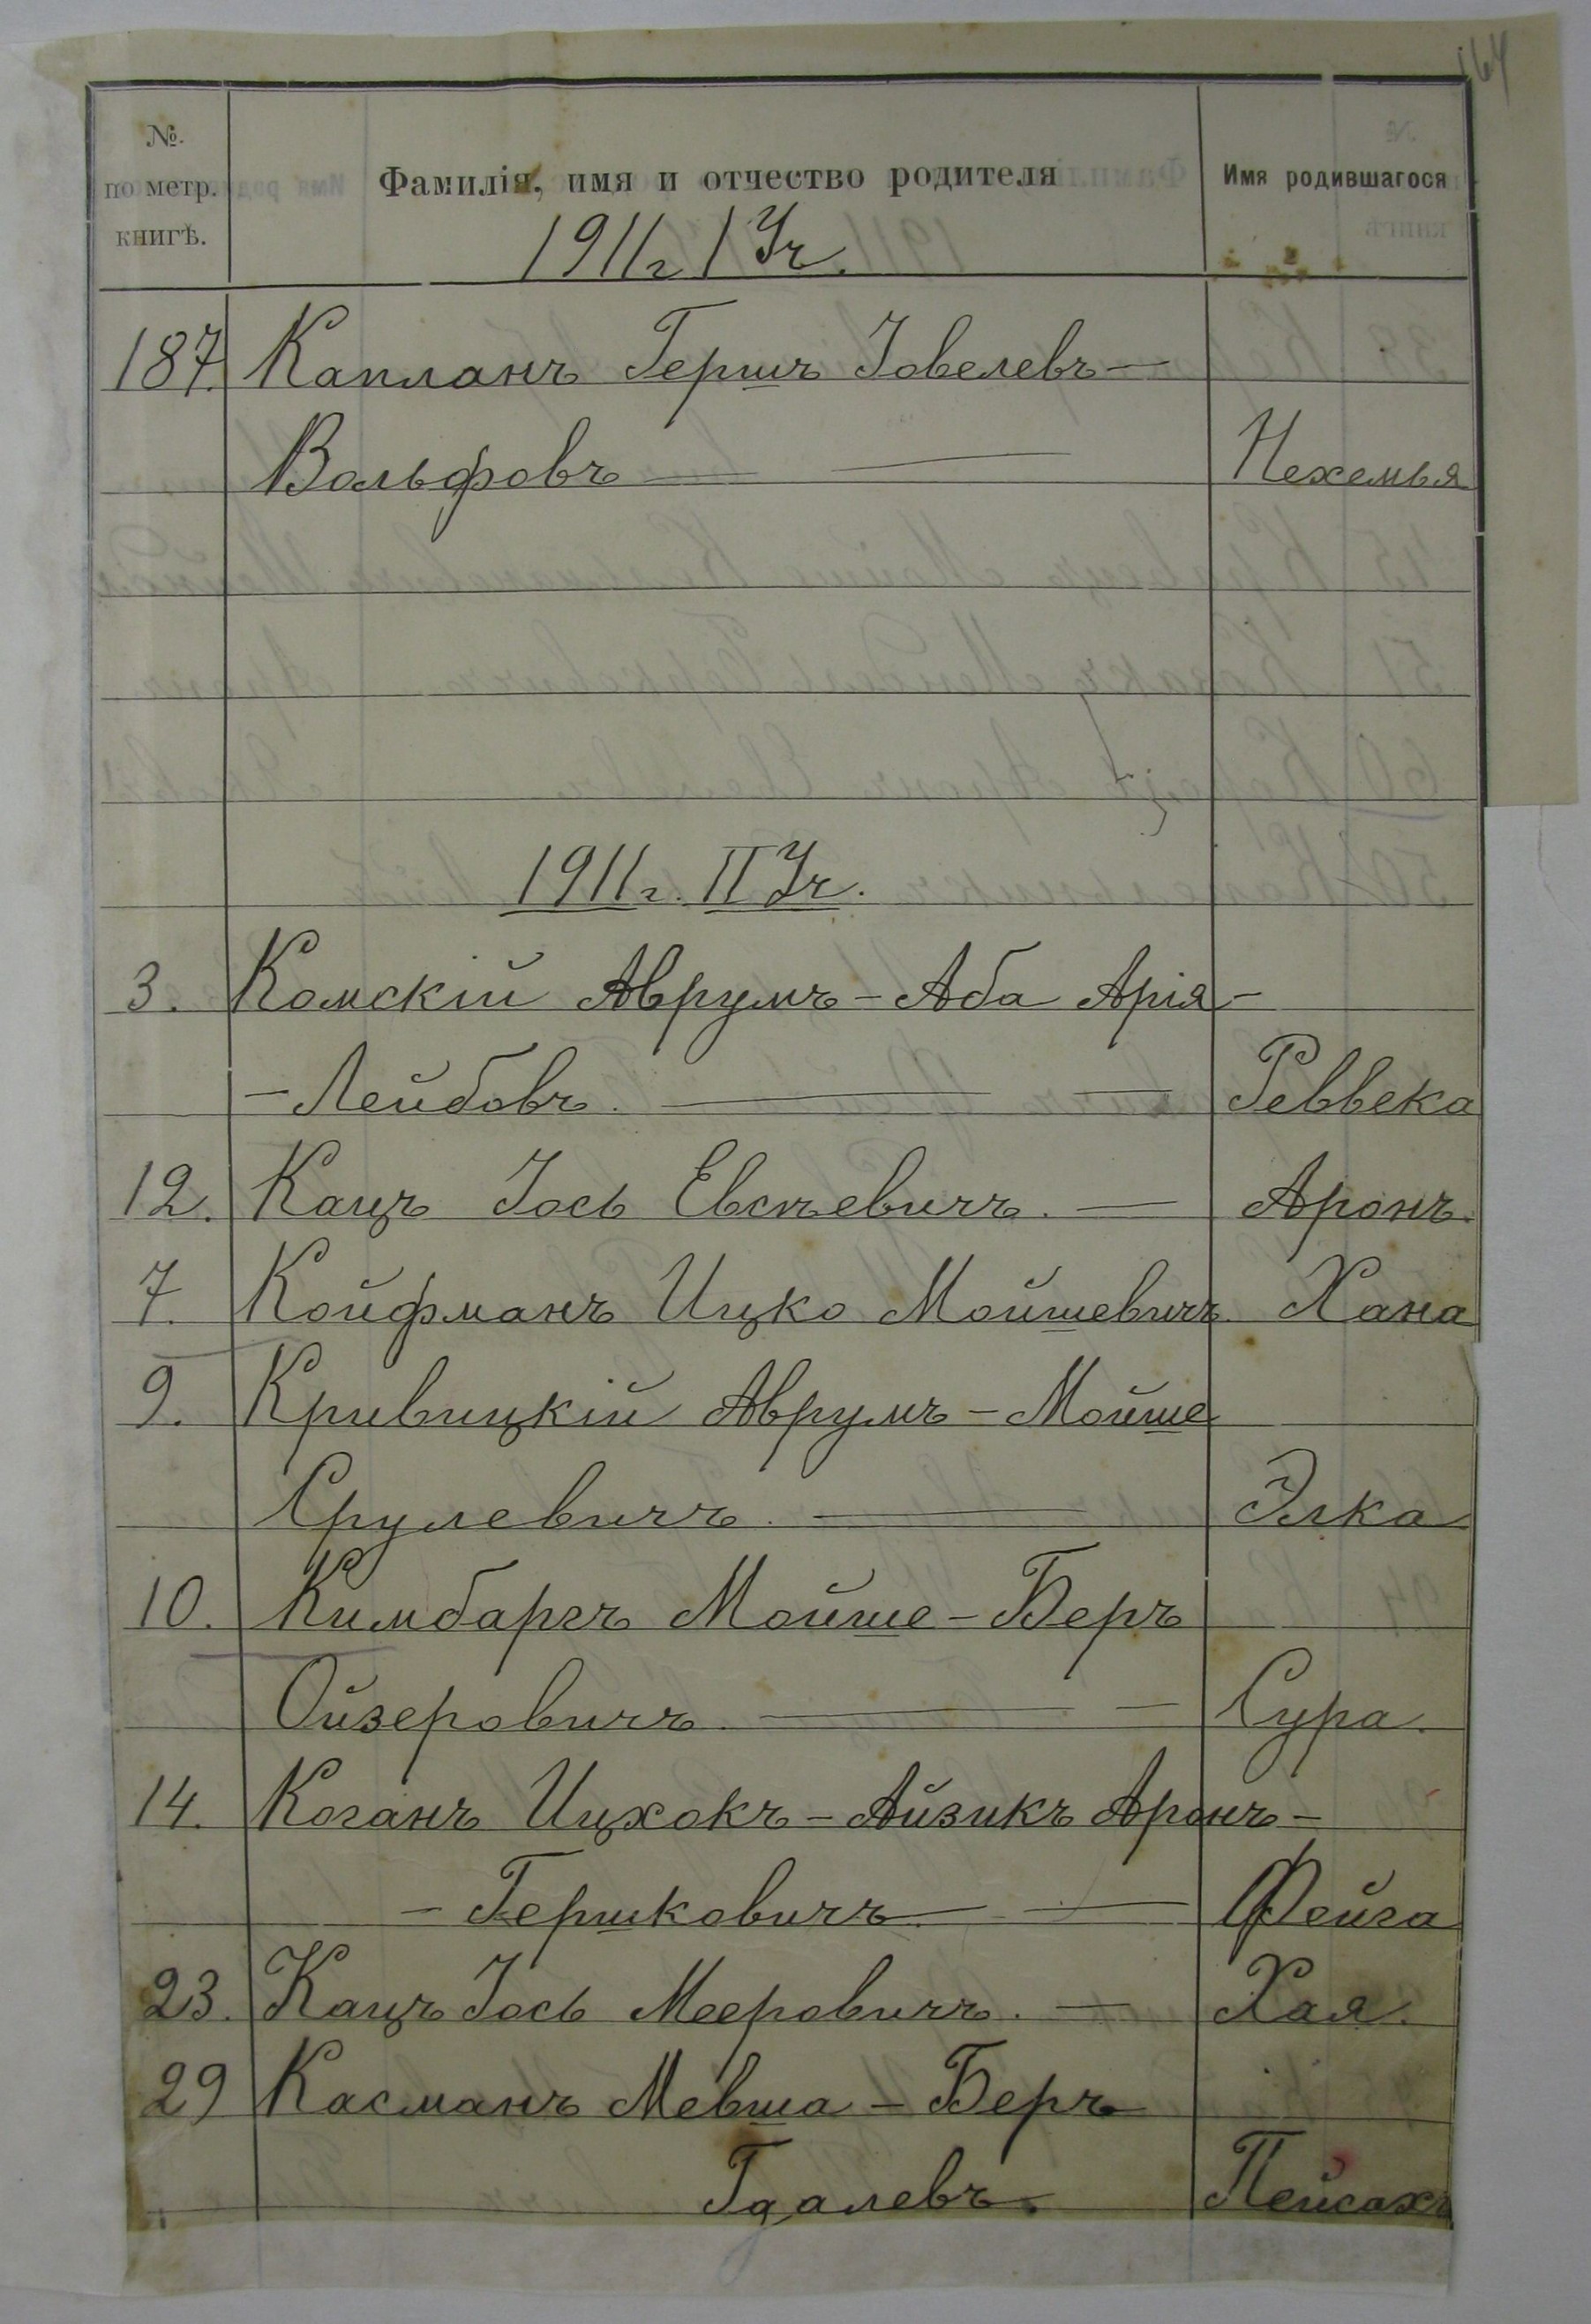 164
№ по метр. книгѣ. Фамилія, имя и отчество родителя Имя родившагося
1911г I Уч.
187. Капланъ Гершъ Іовелевъ—
Вольфовъ — — Нехемья
1911г. II Уч.
3. Комскій Аврумъ-Аба Арія-
-Лейбовъ. — — Реввека
12. Кацъ Іось Евсѣевичъ. — Аронъ.
7. Койфманъ Ицко Мойшевичъ. Хана
9. Кривицкій Аврумъ-Мойше
Срулевичъ. — Элка
10. Кимбаргъ Мойше-Беръ
Ойзеровичъ. — — Сура.
14. Коганъ Ицхокъ-Айзикъ Аронъ-
-Гершковичъ. — — Фейга
23. Кацъ Іось Мееровичъ. — Хая.
29 Касманъ Мевша-Беръ
Гдалевъ. Пейсахъ